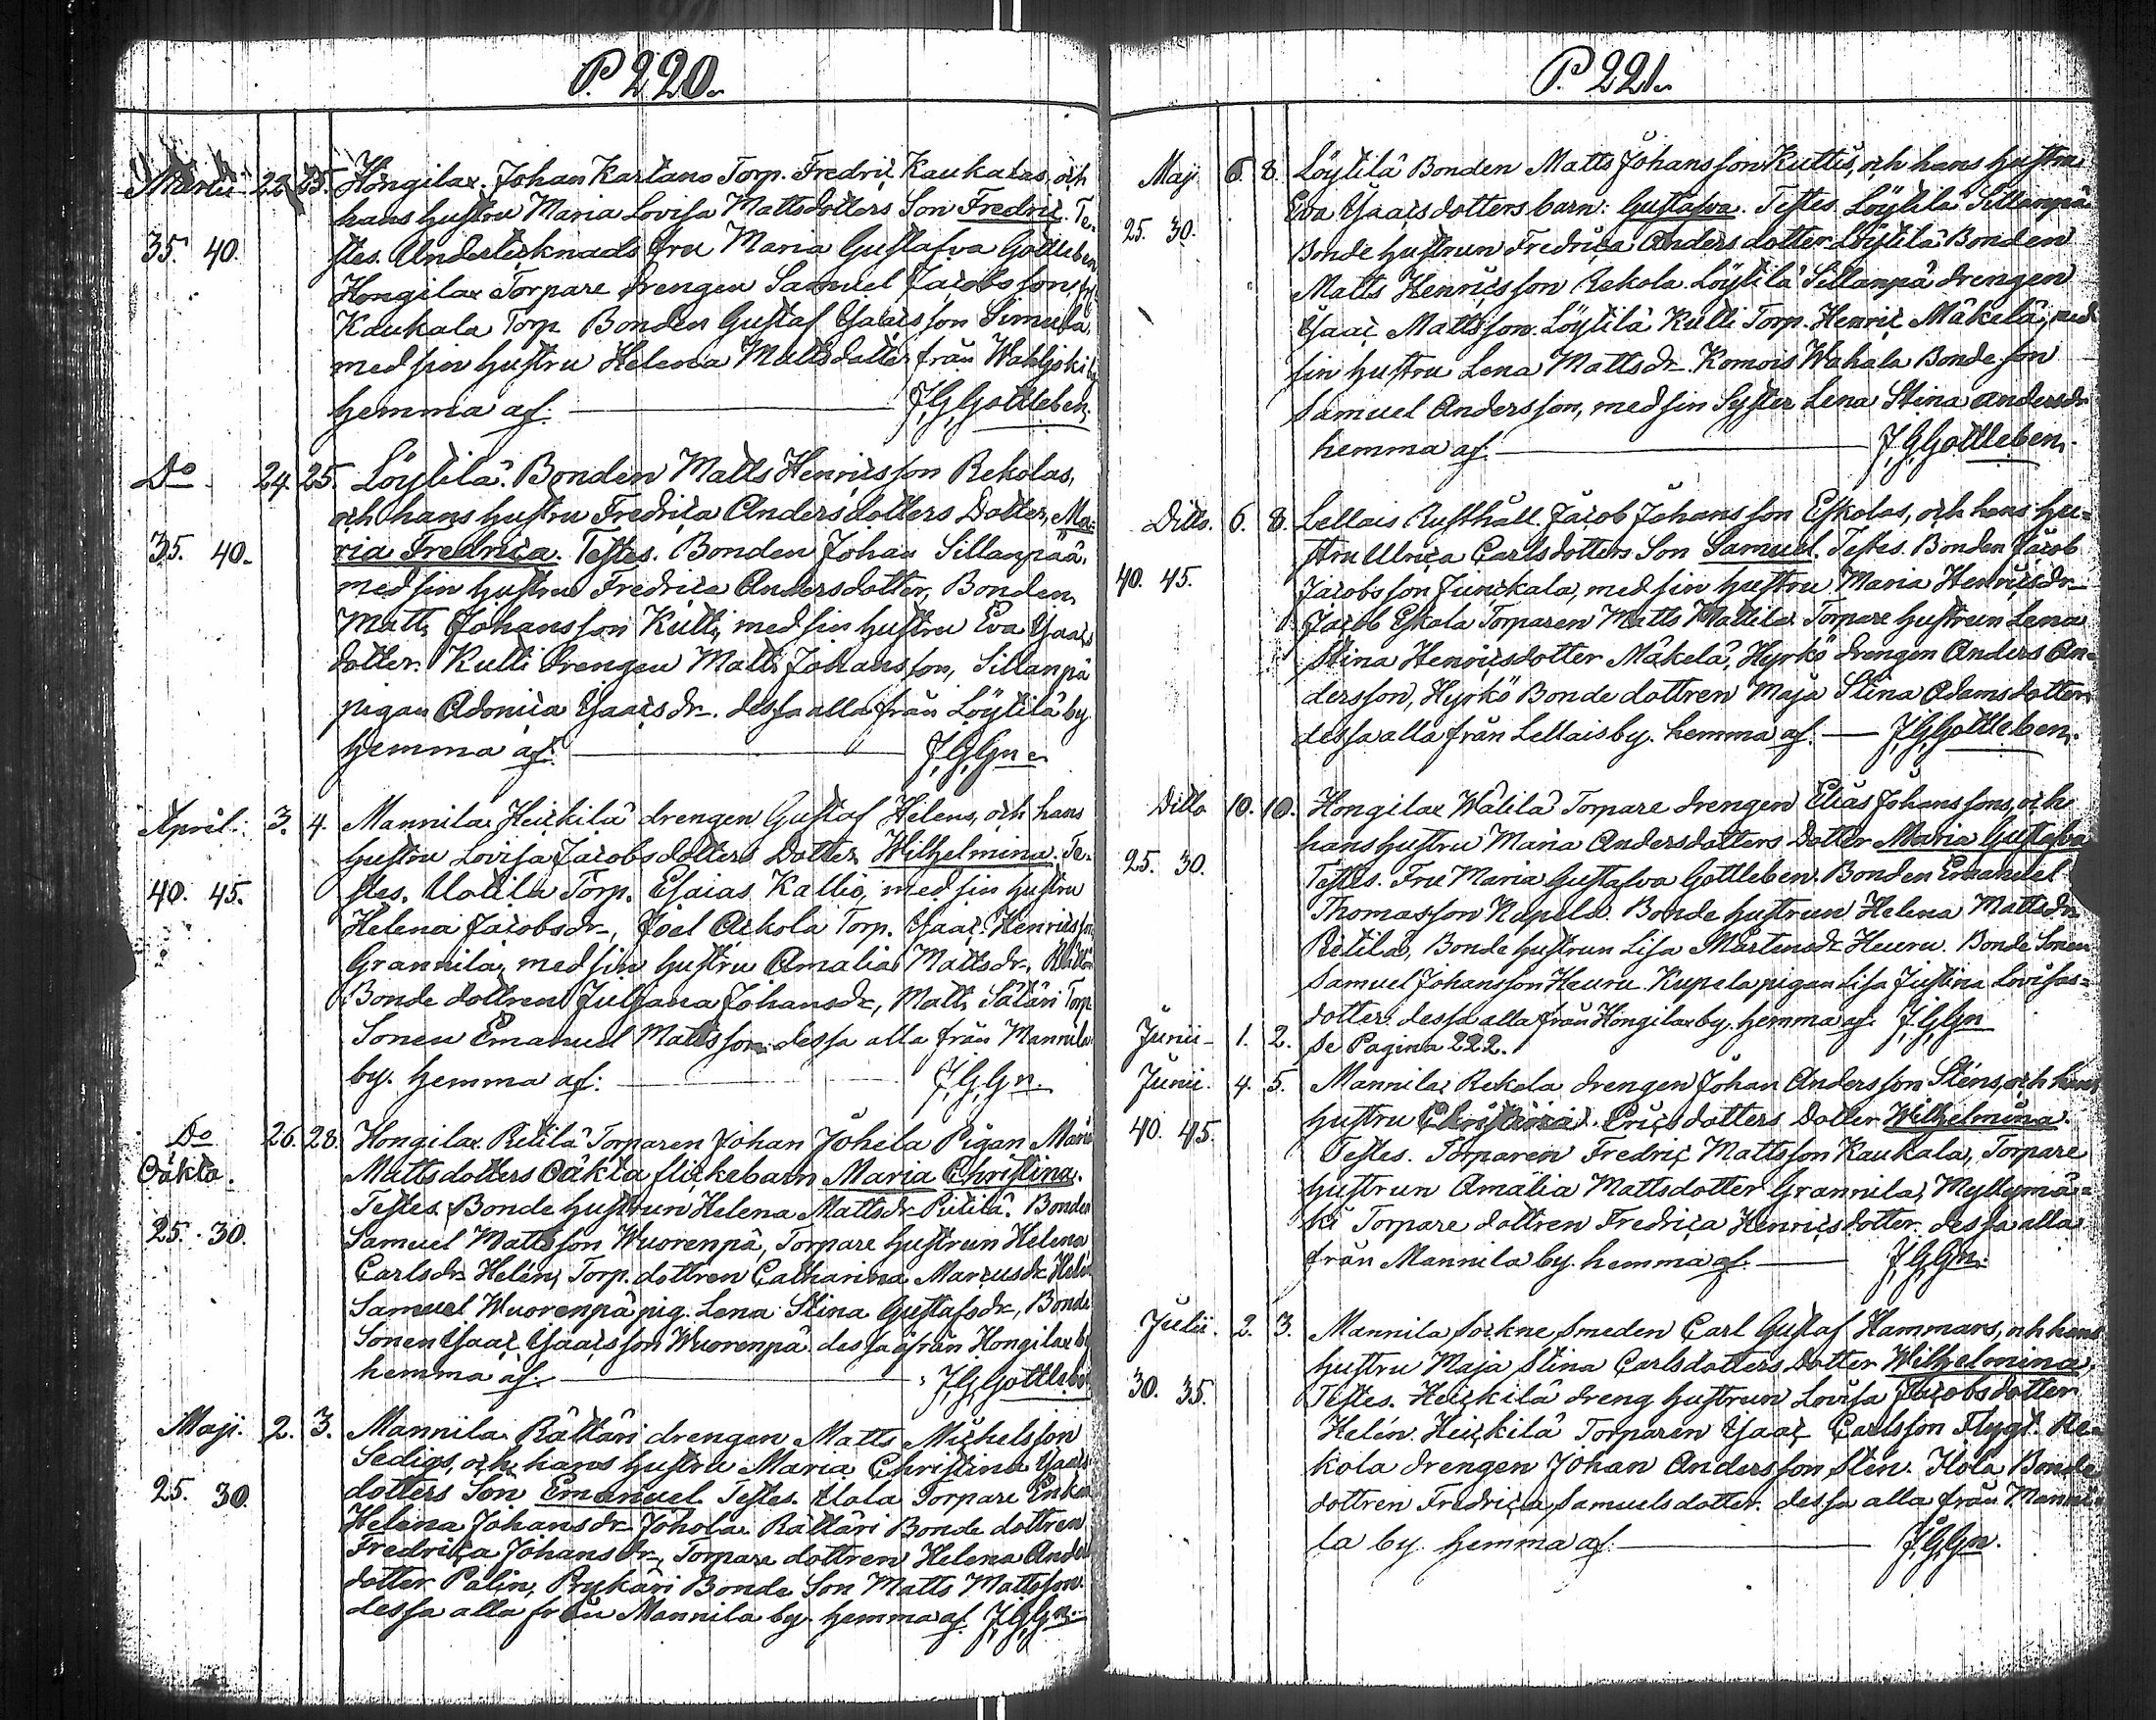 P. 220.
Martii 22. 25. Hongilax. Johan Kartano Torp. Fredric Kaukalas, och
hans hustru Maria Lovisa Mattsdotters Son Fredric. Te-
35. 40. stes. Undertecknads fru Maria Gustafva Gottleben
Hongilax Torpare drengen Samuel Jacobsson,
Kaukala Torp. Bonden Gustaf Isacsson Simula,
med sin hustru Helena Mattsdotter från
hemma af. J,G,Gottleben.
Do 24. 25. Löytilä. Bonden Matts Henricsson Rekolas,
och hans hustru Fredrica Andersdotters Dotter, Ma-
35. 40. ria Fredrica. Testes. Bonden Johan Sillanpää,
med sin hustru Fredrica Andersdotter, Bonden
Matts Johansson Kulti, med sin hustru Eva Isacs
dotter. Kulti drengen Matts Johansson, Sillanpä
pigan Adonica Isacsdr. dessa alla från Löytilä by.
hemma af. J,G,Gn
April. 3. 4. Mannila Heickilä drengen Gustaf Helens, och hans
hustru Lovisa Jacobsdotters Dotter Wilhelmina. Te-
40. 45. stes. Uotila Torp. Esaias Kallio, med sin hustru
Helena Jacobsdr, Joel Ackola Torp. Isaac Henricsson
Grannila, med sin hustru Amalia Mattsdr,
Bonde dottren Juliana Johansdr, Matts Sätäri Torp.
Sonen Emanuel Mattsson. dessa alla från Mannila
by. hemma af. J,G,Gn.
Do 26. 28. Hongilax. Pietilä Torparen Johan Johela Pigan Maria
Oäkta. Mattsdotters Oäkta flickebarn Maria Christina.
Testes. Bonde hustrun Helena Mattsdr Pietilä. Bonden
25. 30. Samuel Mattsson Wuorenpä, Torpare hustrun Helena
Carlsdr Helén, Torp. dottren Catharina Marcusdr Helén
Samuel Wuorenpä pig. Lena Stina Gustafsdr, Bonde
Sonen Isaac Isaacsson Wuorenpä. dessa från Hongilax by
hemma af. J,G,Gottleben
Maji. 2. 3. Mannila Rättäri drengen Matts Michelsson
Sedigs, och hans hustru Maria Christina Isacs
25. 30. dotters Son Emanuel. Testes. Uola Torpare Enkan
Helena Johansdr Johola. Rättäri Bonde dottren
Fredrica Johansdr, Torpare dottren Helena Anders
dotter Palin, Prykäri Bonde Son Matts Mattsson.
dessa alla från Mannila by. hemma af. J,G,Gn
P. 221.
Maij 6. 8. Löytilä Bonden Matts Johansson Kultis, och hans hustru
Eva Isaacsdotters barn: Gustafva. Testes. Löytilä Sillanpä
25. 30. Bonde hustrun Fredrica Andersdotter. Löytilä Bonden
Matts Henricsson Rekola. Löytilä Sillanpä drengen
Isaac Mattsson. Löytilä Kulti Torp. Henric Mäkelä, med
sin hustru Lena Mattsdr. Komois Wahala Bonde son
Samuel Andersson, med sin Syster Lena Stina Andersdr
hemma af. J,G,Gottleben.
Ditto. 6. 8. Lellais Rusthåll. Jacob Johansson Eskolas, och hans hu-
stru Ulrica Carlsdotters Son Samuel. Testes. Bonden Jacob
40. 45. Jacobsson Junckala, med sin hustru Maria Henricsdr
Jacob Eskola Torparen Matts Mattila. Torpare hustrun Lena
Stina Henricsdotter Mäkelä, Hyrkö drengen Anders An-
dersson, Hyrkö Bonde dottren Maja Stina Adamsdotter
dessa alla från Lellais by. hemma af. J,G,Gottleben.
Ditto 10. 10. Hongilax Wälilä Torpare drengen Elias Johanssons, och
hans hustru Maria Andersdotters Dotter Maria Gustafva
25. 30. Testes. Fru Maria Gustafva Gottleben. Bonden Emanuel
Thomasson Kupela. Bonde hustrun Helena Mattsdr
Pietilä, Bonde hustrun Lisa Mårtensdr Heuru. Bonde Sonen
Samuel Johansson Heuru. Kupela pigan Lisa Justina Lovisas-
dotter. dessa alla från Hongilax by. hemma af. J,G,Gn
Junii 1. 2. Se Pagina 222.
Junii. 4. 5. Mannila Rekola drengen Johan Andersson Sténs, och hans
hustru Christina Ericsdotters Dotter Wilhelmina.
40. 45. Testes. Torparen Fredric Mattsson Kaukala, Torpare
hustrun Amalia Mattsdotter Grannila, Myllymä-
ki Torpare dottren Fredrica Henricsdotter. dessa alla
från Mannila by. hemma af. J,G,Gn.
Julii. 2. 3. Mannila Sockne Smeden Carl Gustaf Hammars, och hans
hustru Maja Stina Carlsdotters Dotter Wilhelmina,
30. 35. Testes. Heickilä dreng hustrun Lovisa Jacobsdotter
Helén. Heickilä Torparen Isaac Carlsson Flygt. Re-
kola drengen Johan Andersson Stén. Ilola Bonde
dottren Fredrica Samuelsdotter. dessa alla från Manni-
la by. hemma af. J,G,Gn.